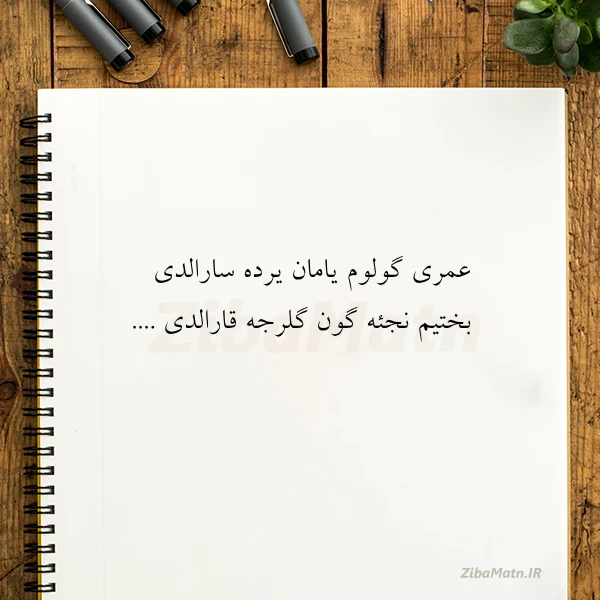 عمری گولوم یامان یرده سارالدی
بختیم نجئه گون گلرجه قارالدی ....
ZibaMatn
ZibaMatn.IR